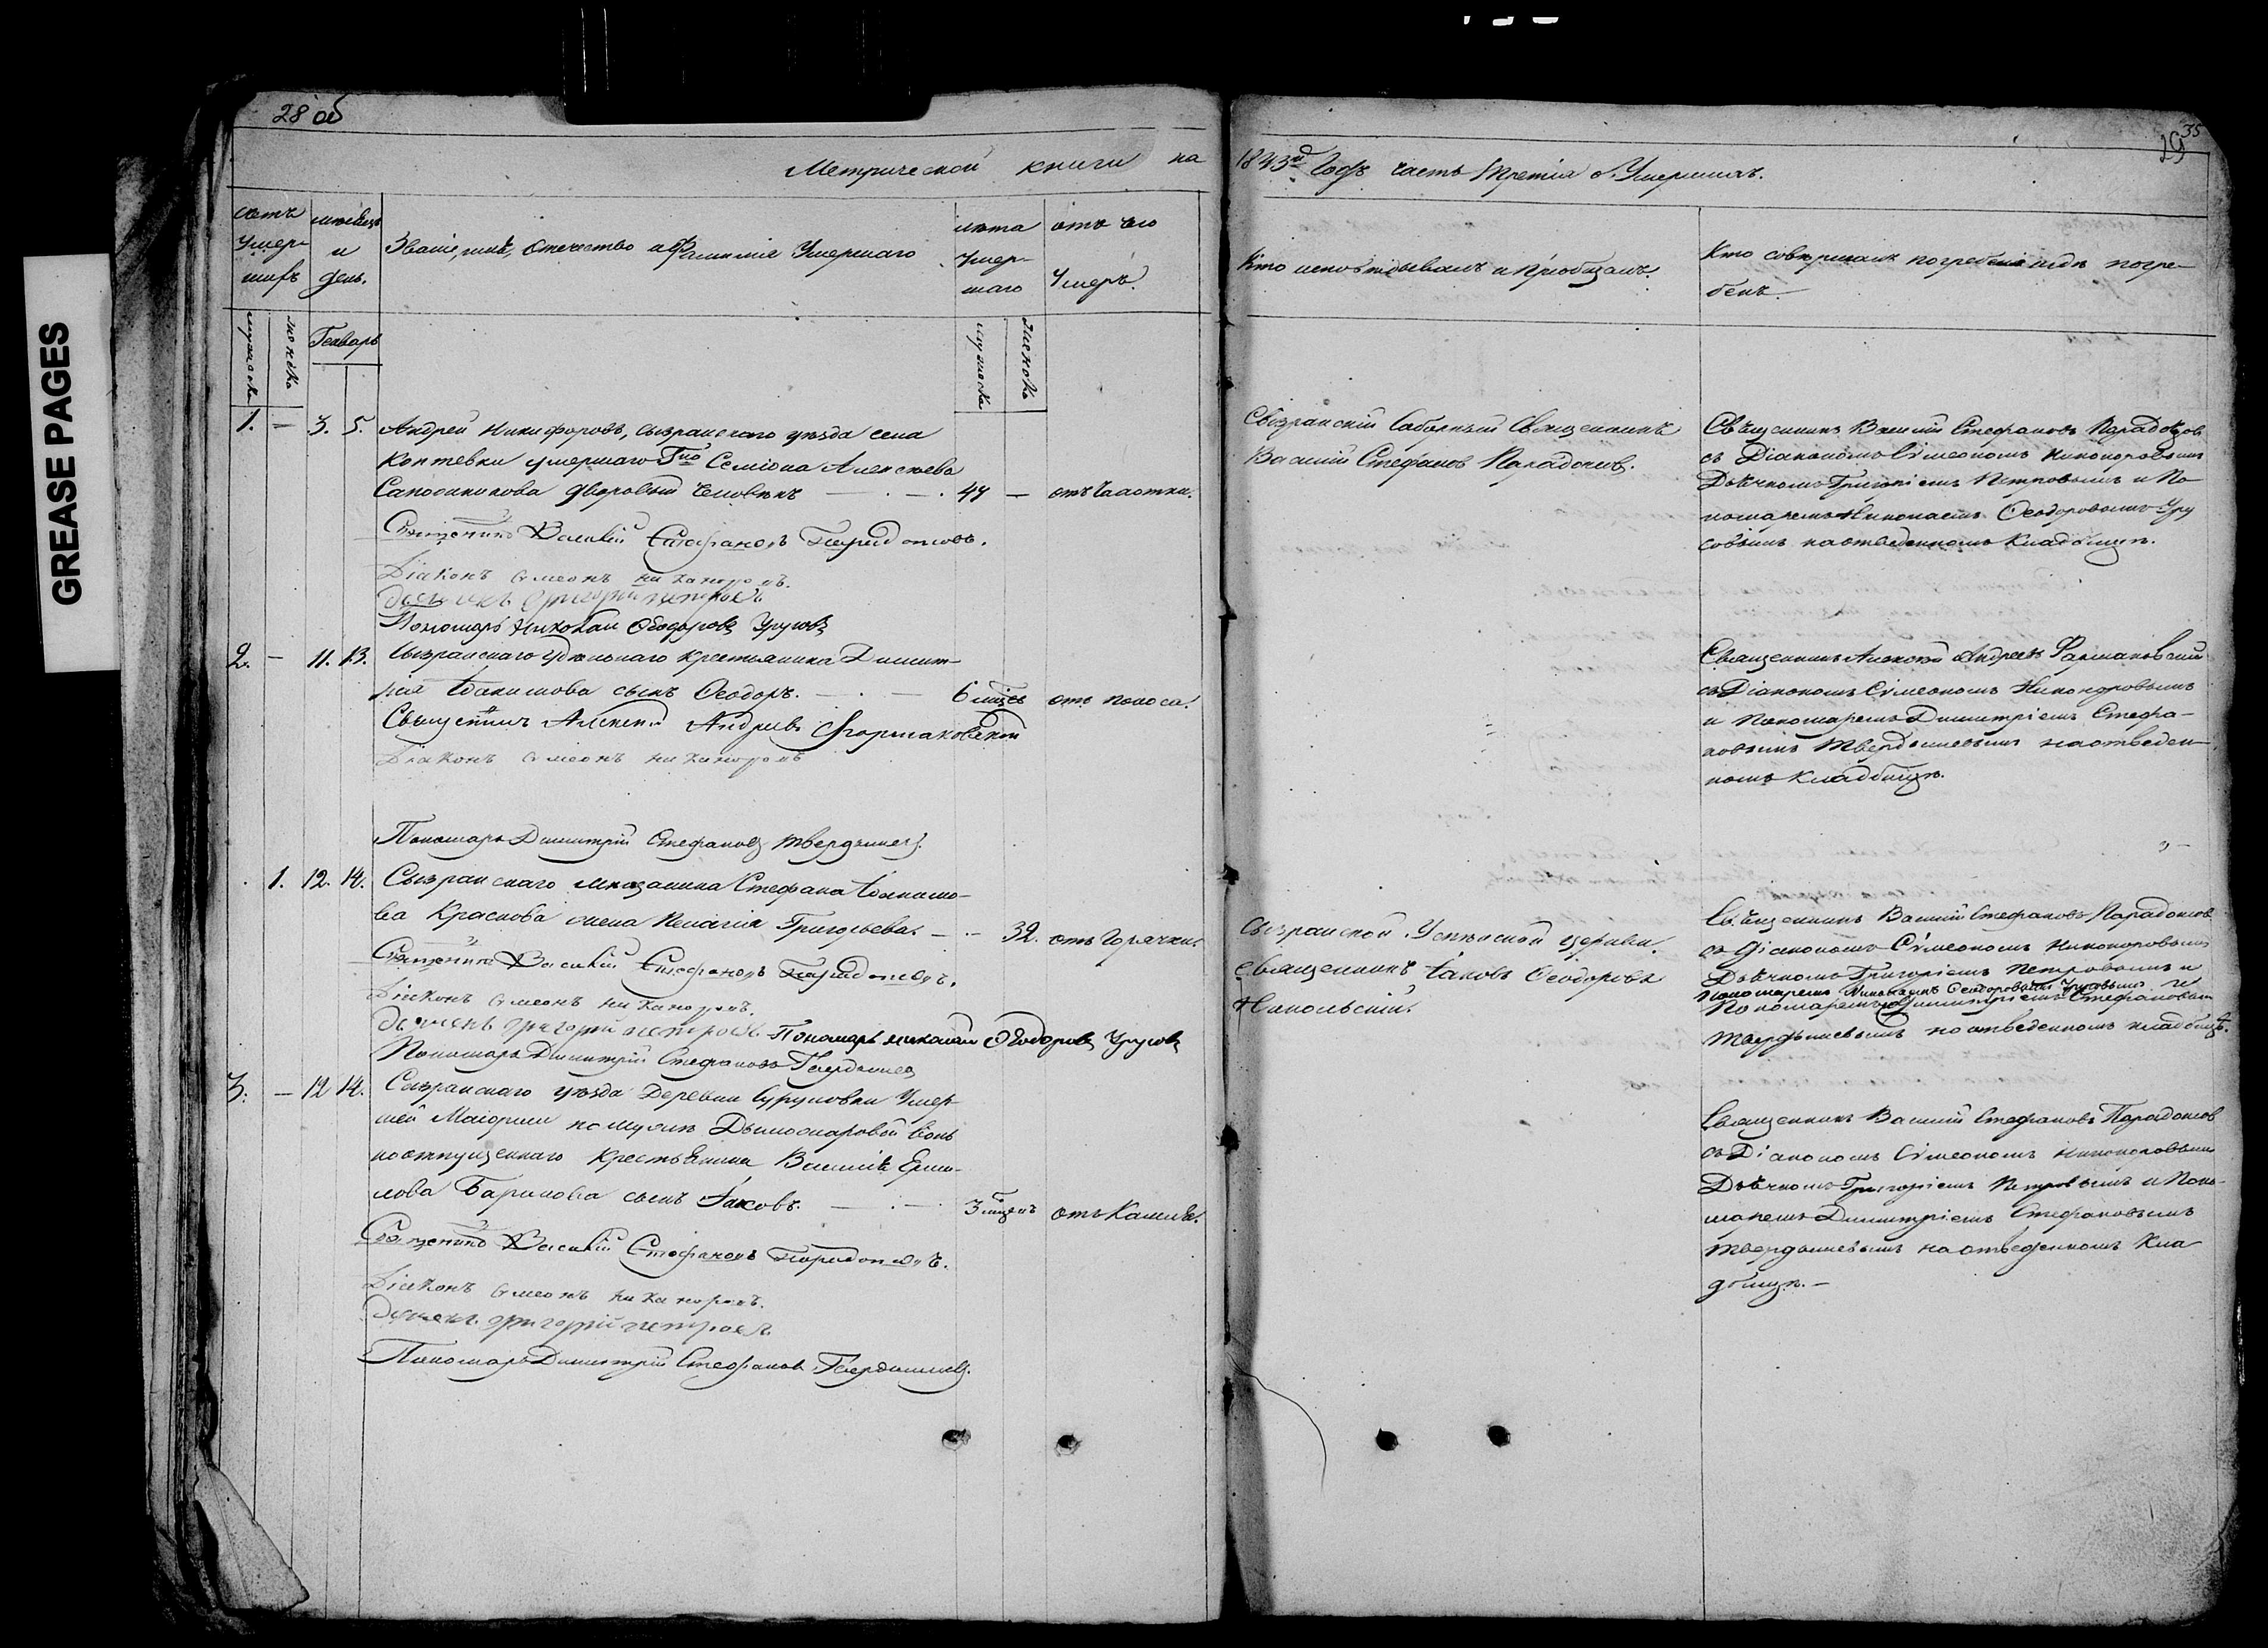 GREASE PAGES
28 об
Метрической книги на
1843й Годъ часть Третія о Умершихъ.
29
35
счетъ умершихъ
мѣсяцъ и день.
Званіе, имѣ, Отечество и Фамиліе Умершаго
лѣта умершаго
отъ чего Умеръ.
Кто исповѣдывалъ и Пріобщалъ.
Кто совершалъ погребеніе и гдѣ погребенъ.
мужеска
женска
Генварь
мужеска
женска
1. — 3. 5. Андрей Никифоровъ, сызранскаго уѣзда села
Коптевки умершаго Гна Семіона Алексѣева
Сапожникова дворовый человѣкъ — . — . 47 — отъ Чахотки.
Священникъ Василій Стефановъ Парадоксовъ.
Діаконъ Симеонъ Никаноровъ.
Дьячекъ Григорій Петровъ
Пономарь Николай Ѳеодоровъ Урусовъ
Сызранскій Саборный Священникъ
Василій Стефановъ Парадоксовъ.
Священникъ Василій Стефановъ Парадоксов
съ Діакономъ Сѵмеономъ Никоноровымъ
Дьячкомъ Григоріемъ Петровымъ и По
номаремъ Николаемъ Ѳеодоровымъ Уру
совымъ на отведенномъ Кладбищѣ.
2. — 11. 13. Сызранскаго удѣльнаго крестьянина Димит
рія сынъ Ѳеодоръ. — . — 6 мѣсцъ отъ поноса.
Священникъ Алексѣй Андреевъ Фармаковскій
Діаконъ Симеонъ Никаноровъ
Пономарь Димитрій Стефановъ Твердышевъ.
Священникъ Алексѣй Андреевъ Фармаковскій
съ Діакономъ Сѵмеономъ Никоноровымъ
и Пономаремъ Димитріемъ Стефа-
новымъ Твердышевымъ на отведен
номъ кладбищѣ.
1. 12. 14. Сызранскаго мѣщанина Стефана
Краснова жена Пелагія Григорьева. — — 32. отъ Горячки.
Священникъ Василій Стефановъ Парадоксовъ.
Діаконъ Симеонъ Никаноровъ.
Дьячекъ Григорій Петровъ. Пономарь Николай Ѳеодоровъ Урусовъ
Пономарь Димитрій Стефановъ Твердышевъ
Сызранской Успенской церкви.
Священникъ Іаковъ Ѳеодоровъ
Никольскій.
Священникъ Василій Стефановъ Парадоксов
съ діакономъ Сѵмеономъ Никоноровымъ
Дьячкомъ Григоріемъ Петровымъ и
пономаремъ Николаемъ Ѳеодоровымъ Урусовымъ и
Пономаремъ Димитріемъ Стефановым
Твердышевымъ на отведенномъ кладбищѣ.
3. — 12 14. Сызранскаго уѣзда Деревни Умер
шей Маіорши по мужѣ воль
ноотпущеннаго крестьянина Василія Ерми-
лова Баринова сынъ Іаковъ. — . — 3 отъ Кашля.
Священникъ Василій Стефановъ Парадоксовъ.
Діаконъ Симеонъ Никаноровъ.
Дьячекъ Григорій Петровъ.
Пономарь Димитрій Стефановъ Твердышевъ.
Священникъ Василій Стефановъ Парадоксов
съ Діакономъ Сѵмеономъ Никоноровымъ
Дьячкомъ Григоріемъ Петровымъ и Поно-
маремъ Димитріемъ Стефановымъ
Твердышевымъ на отведенномъ Кла
дбищѣ. —